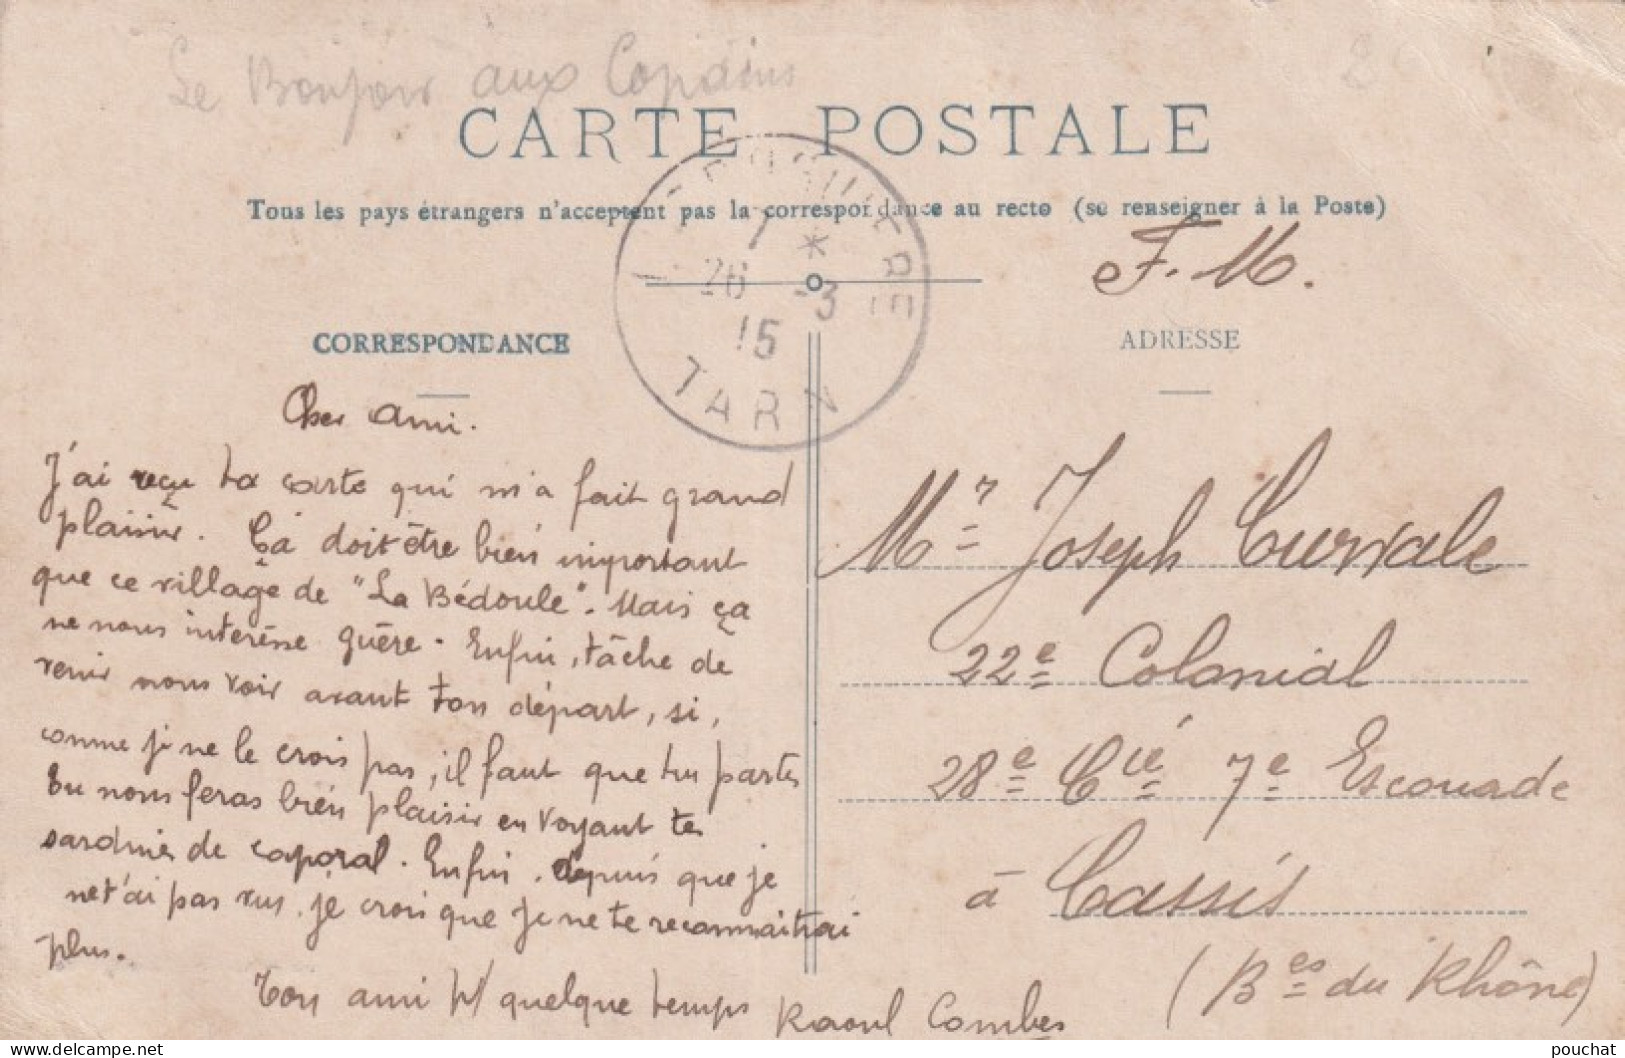 Le Bonjour aux Copains
CARTE POSTALE
Tous les pays étrangers n'acceptent pas la correspondance au recto (se renseigner à la Poste)
F.M.
7 *
26 -3
15
TARN
CORRESPONDANCE
ADRESSE
Cher ami.
J'ai reçu ta carte qui m'a fait grand
plaisir. Çà doit être bien important
que ce village de "La Bédoule". Mais ça
ne nous intéresse guère. Enfin, tâche de
venir nous voir avant ton départ, si,
comme je ne le crois pas, il faut que tu partes
tu nous feras bien plaisir en voyant tes
sardines de caporal. Enfin, depuis que je
ne t'ai pas vu, je crois que je ne te reconnaitrai
plus.
Ton ami pr quelque temps Raoul Combes
Mr Joseph Curvale
22e Colonial
28e Cié 7e Escouade
à Cassis
(Bes du Rhône)
pouchat